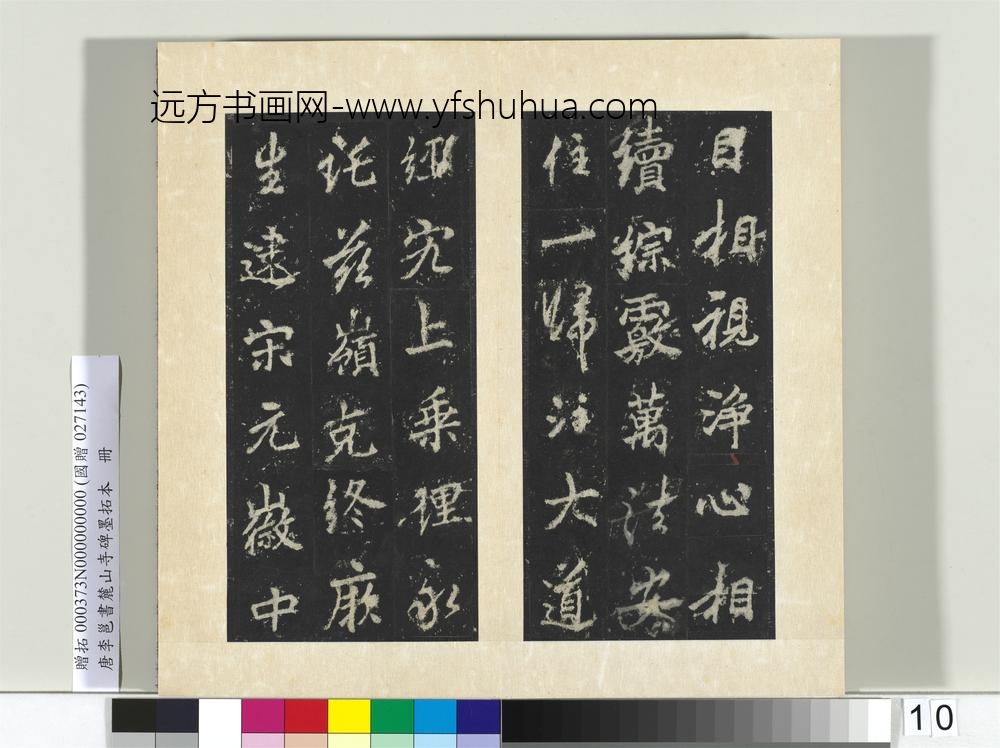 远方书画网-www.yfshuhua.com
目相視淨心相
續綜覈萬法安
住一歸注大道
經究上乘理永
託茲嶺克終厥
生逮宋元徽中
贈拓 000373N000000000 (國贈 027143)
唐李邕書麓山寺碑墨拓本 冊
10